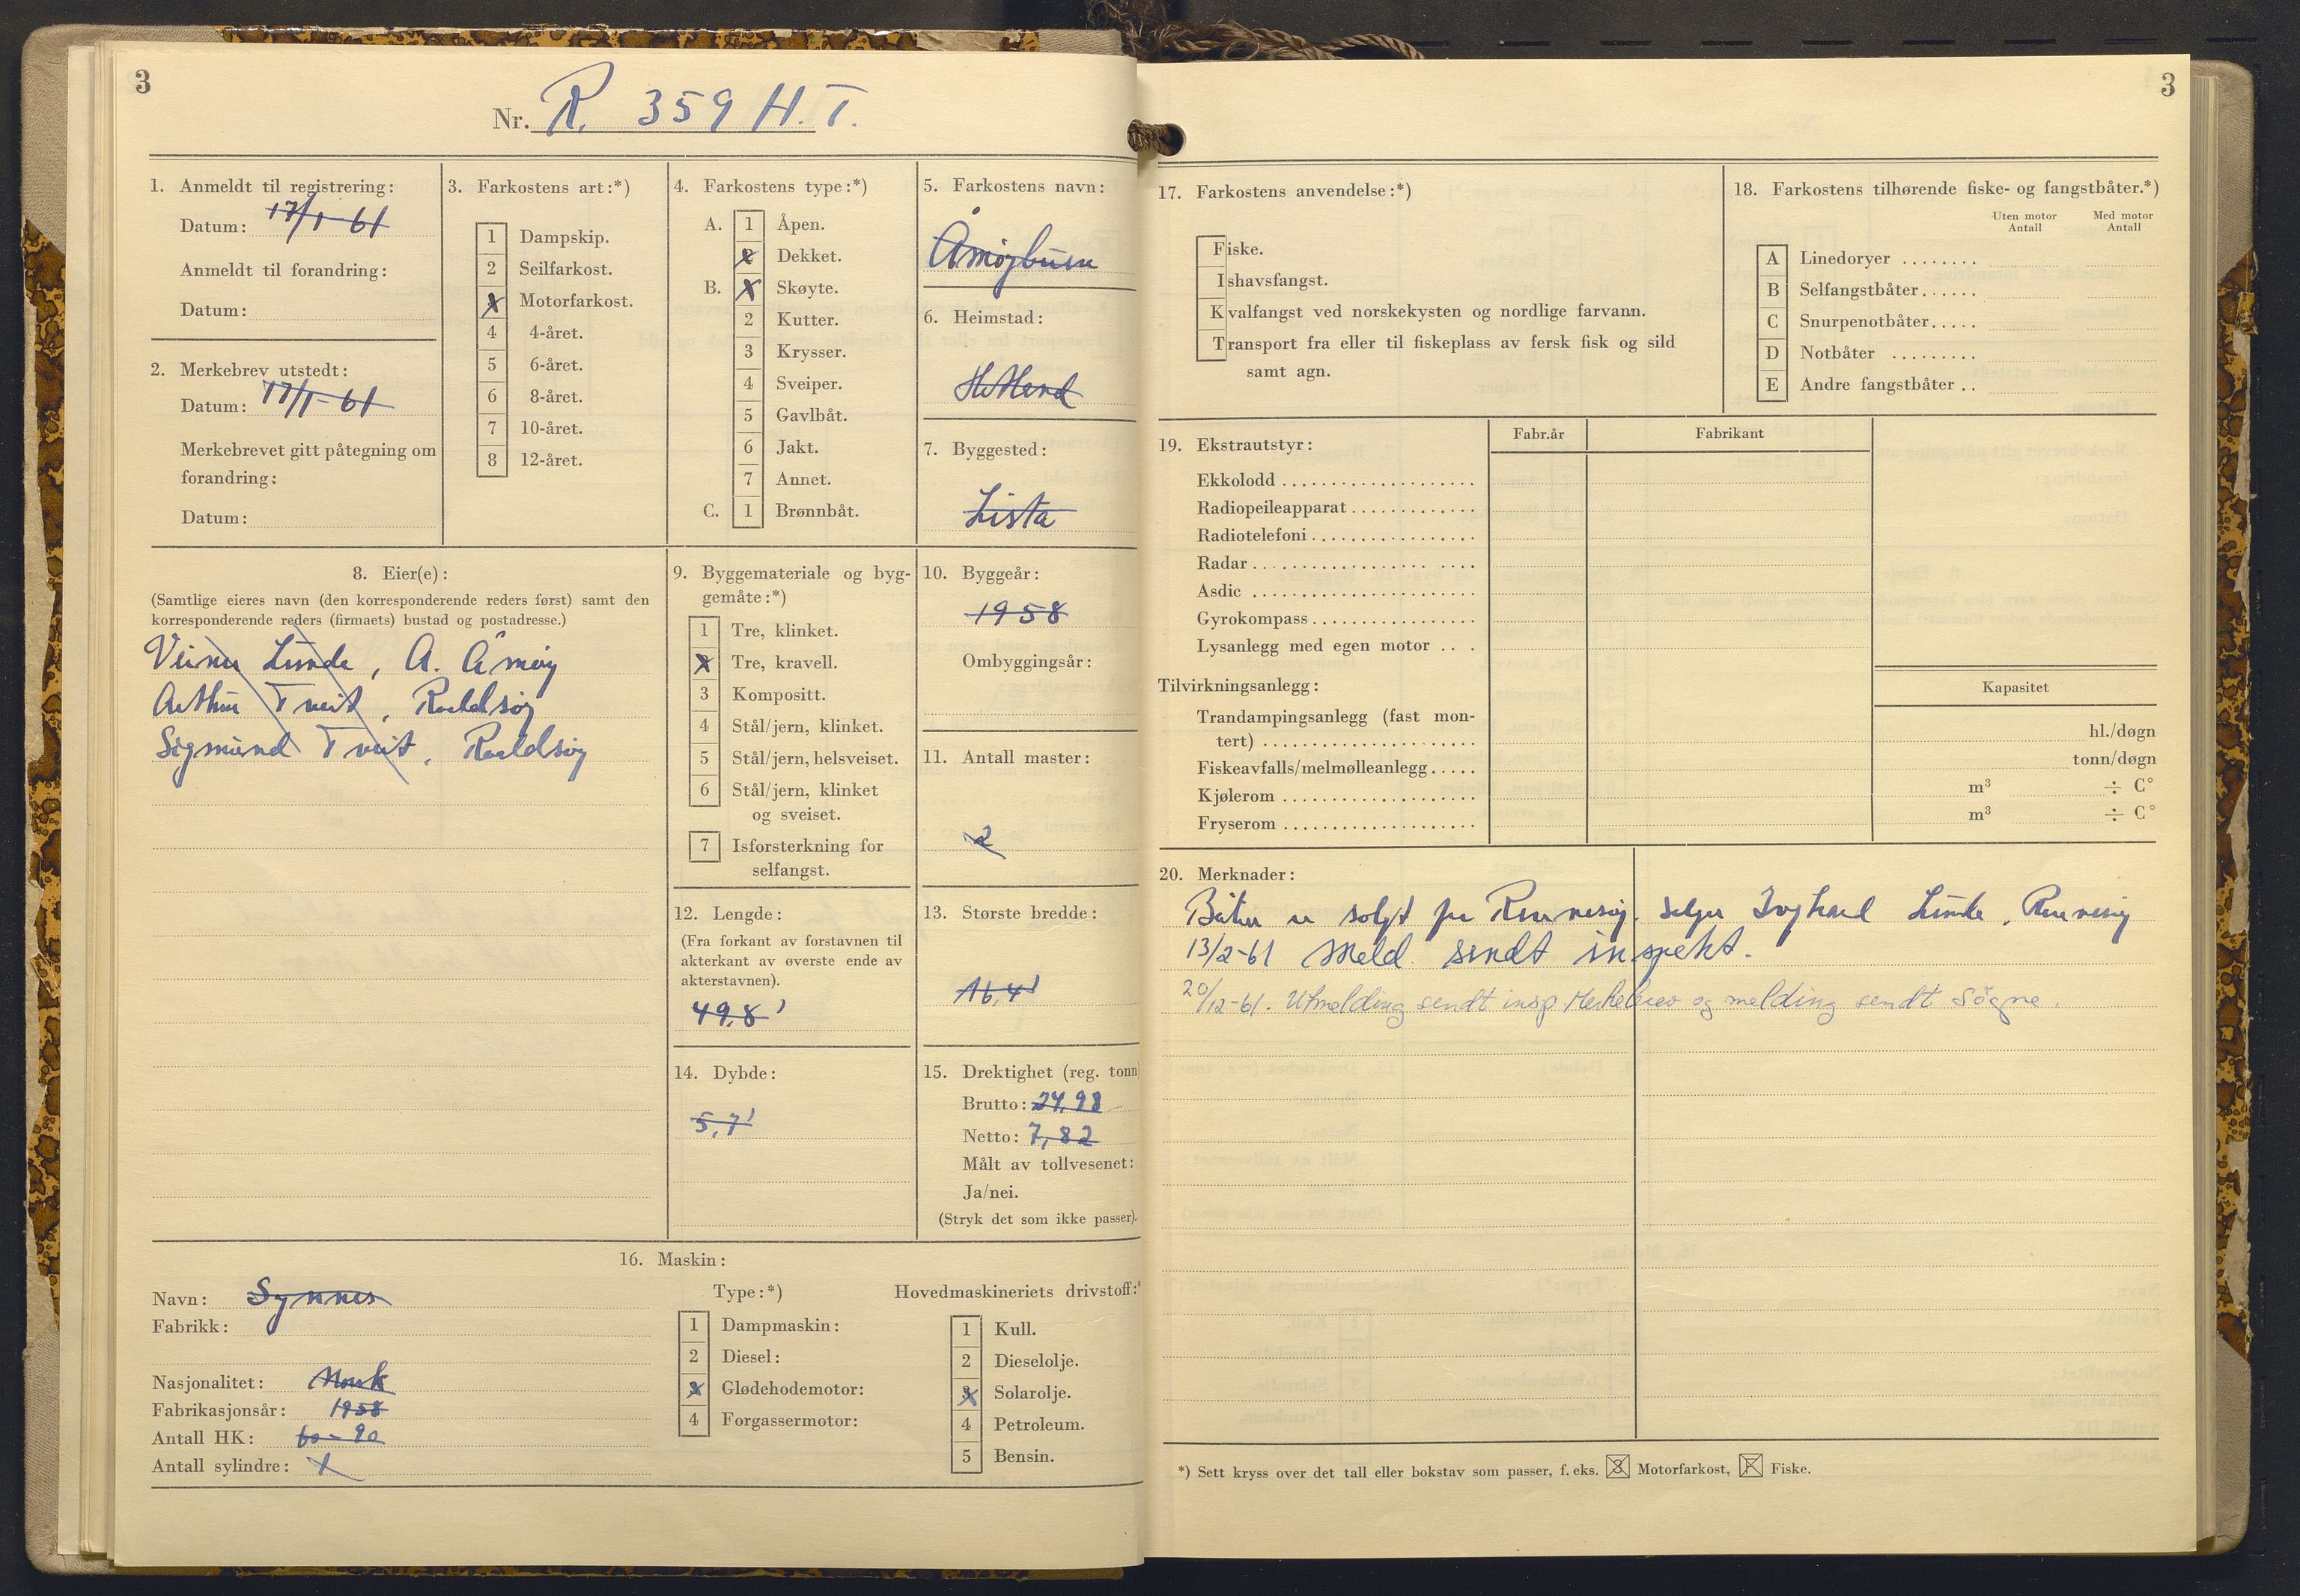 3
Nr. R. 359 H.T.
1. Anmeldt til registrering:
Datum: 17/1-61
Anmeldt til forandring:
Datum:
2. Merkebrev utstedt:
Datum: 17/1-61
Merkebrevet gitt påtegning om
forandring:
Datum:
3. Farkostens art:*)
1 Dampskip.
2 Seilfarkost.
X Motorfarkost.
4 4-året.
5 6-året.
6 8-året.
7 10-året.
8 12-året.
4. Farkostens type:*)
A. 1 Åpen.
2 Dekket.
B. X Skøyte.
2 Kutter.
3 Krysser.
4 Sveiper.
5 Gavlbåt.
6 Jakt.
7 Annet.
C. 1 Brønnbåt.
5. Farkostens navn:
Åmøybuen
6. Heimstad:
7. Byggested:
Lista
8. Eier(e):
(Samtlige eieres navn (den korresponderende reders først) samt den
korresponderende reders (firmaets) bustad og postadresse.)
Lunde, A. Åmøy
Arthur Tveit,
Sigmund Tveit,
9. Byggemateriale og byg-
gemåte:*)
1 Tre, klinket.
X Tre, kravell.
3 Kompositt.
4 Stål/jern, klinket.
5 Stål/jern, helsveiset.
6 Stål/jern, klinket
og sveiset.
7 Isforsterkning for
selfangst.
10. Byggeår:
1958
Ombyggingsår:
11. Antall master:
2
12. Lengde:
(Fra forkant av forstavnen til
akterkant av øverste ende av
akterstavnen).
49,8'
13. Største bredde:
16,4'
14. Dybde:
5,7'
15. Drektighet (reg. tonn
Brutto: 24,98
Netto: 7,82
Målt av tollvesenet:
Ja/nei.
(Stryk det som ikke passer).
16. Maskin:
Navn: Synnes
Fabrikk:
Nasjonalitet: Norsk
Fabrikasjonsår: 1958
Antall HK: 60-90
Antall sylindre: 1
Type:*)
1 Dampmaskin:
2 Diesel:
3 Glødehodemotor:
4 Forgassermotor:
Hovedmaskineriets drivstoff:*
1 Kull.
2 Dieselolje.
3 Solarolje.
4 Petroleum.
5 Bensin.
3
17. Farkostens anvendelse:*)
Fiske.
Ishavsfangst.
Kvalfangst ved norskekysten og nordlige farvann.
Transport fra eller til fiskeplass av fersk fisk og sild
samt agn.
18. Farkostens tilhørende fiske- og fangstbåter.*)
Uten motor Med motor
Antall Antall
A Linedoryer ........
B Selfangstbåter......
C Snurpenotbåter.....
D Notbåter .........
E Andre fangstbåter ..
19. Ekstrautstyr:
Fabr.år Fabrikant
Ekkolodd ....................
Radiopeileapparat .............
Radiotelefoni .................
Radar ................. ....
Asdic .......................
Gyrokompass ................
Lysanlegg med egen motor .. .
Tilvirkningsanlegg:
Kapasitet
Trandampingsanlegg (fast mon-
tert) ...................... hl./døgn
Fiskeavfalls/melmølleanlegg ..... tonn/døgn
Kjølerom .................... m³ ÷ C°
Fryserom .................... m³ ÷ C°
20. Merknader:
Båten er solgt fra Rennesøy. Selger Lunde, Rennesøy
13/2-61 Meld. sendt inspekt.
20/12-61. Utmelding sendt insp. Merkebrev og melding sendt Søgne.
*) Sett kryss over det tall eller bokstav som passer, f. eks. 3 Motorfarkost, F Fiske.